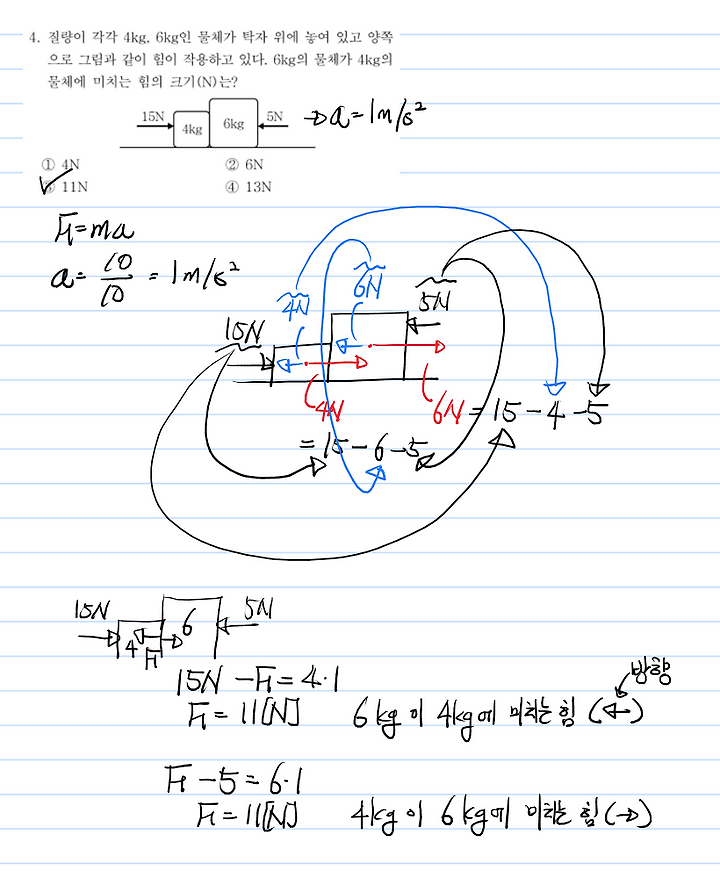 4. 질량이 각각 4kg, 6kg인 물체가 탁자 위에 놓여 있고 양쪽
으로 그림과 같이 힘이 작용하고 있다. 6kg의 물체가 4kg의
물체에 미치는 힘의 크기(N)는?
15N 4kg 6kg 5N → a=1m/s²
① 4N ② 6N
③ 11N ④ 13N
F=ma
a= 10/10 = 1m/s²
4N 6N 5N
15N
4N 6N = 15-4-5
= 15-6-5
15N 4 F 6 5N
15N - F = 4·1 방향
F = 11[N] 6kg이 4kg에 미치는 힘 (←)
F - 5 = 6·1
F = 11[N] 4kg이 6kg에 미치는 힘 (→)